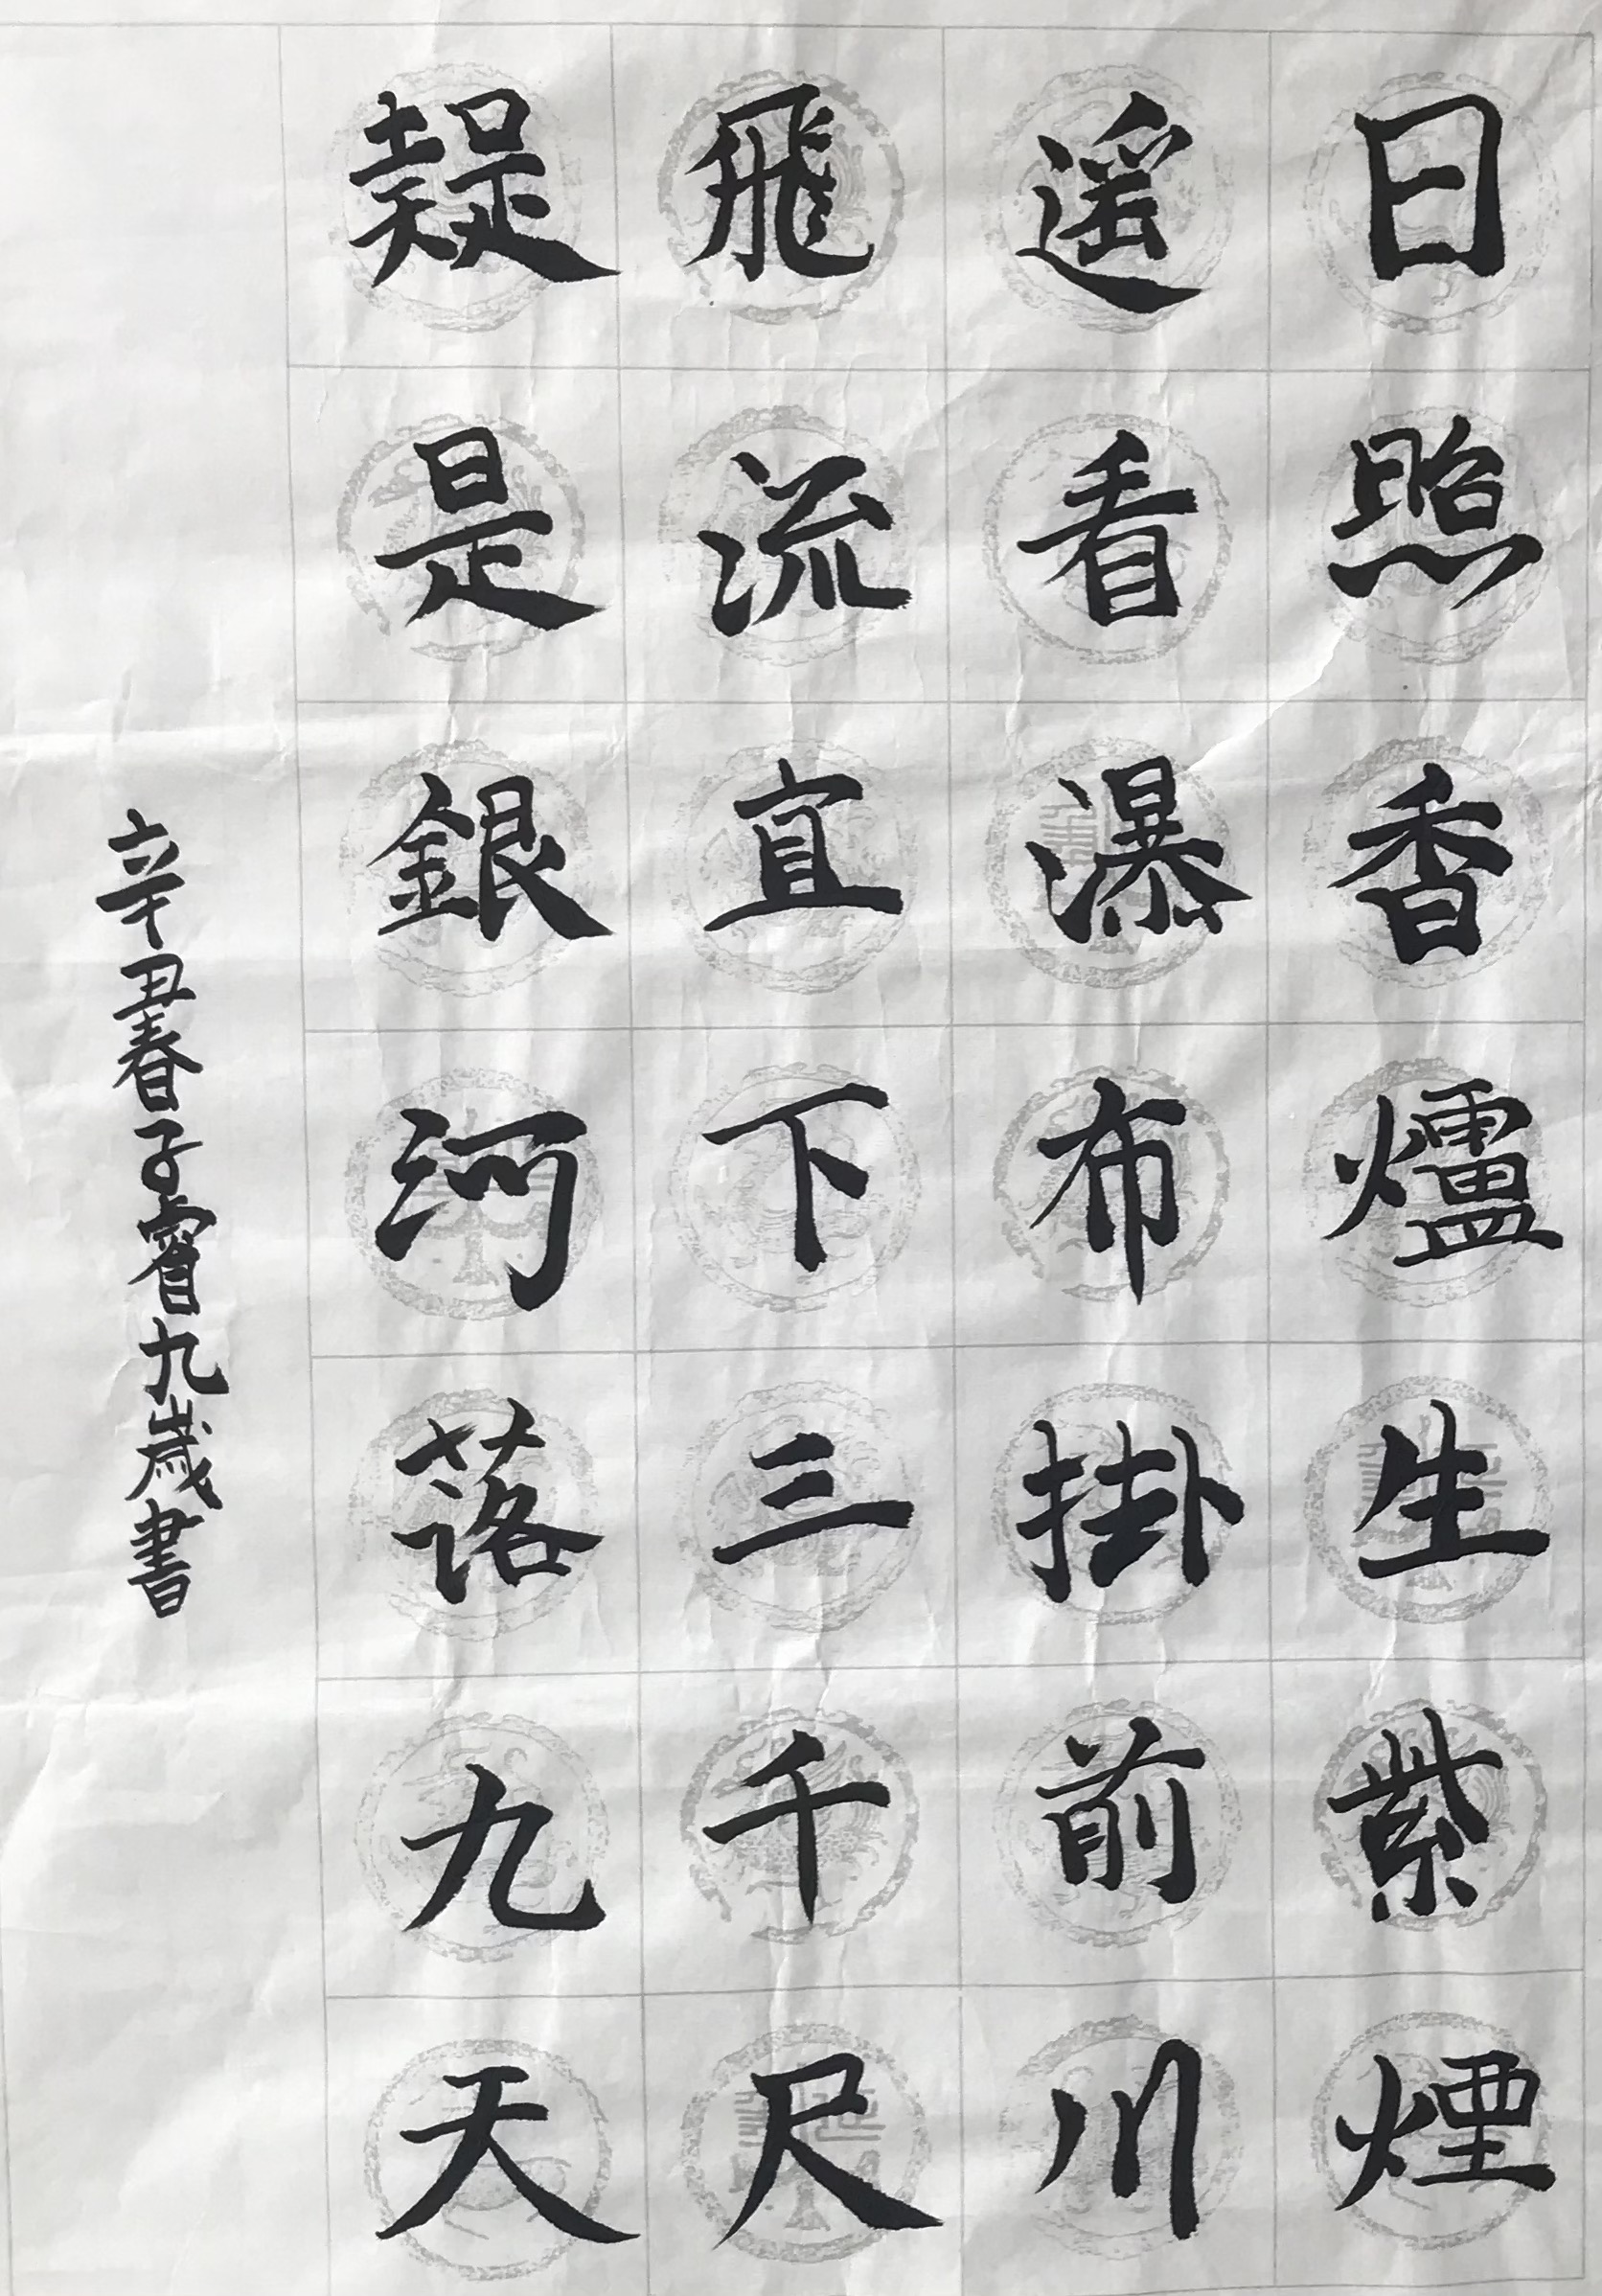 日照香爐生紫煙
遥看瀑布掛前川
飛流直下三千尺
疑是銀河落九天
辛丑春子睿九歲書